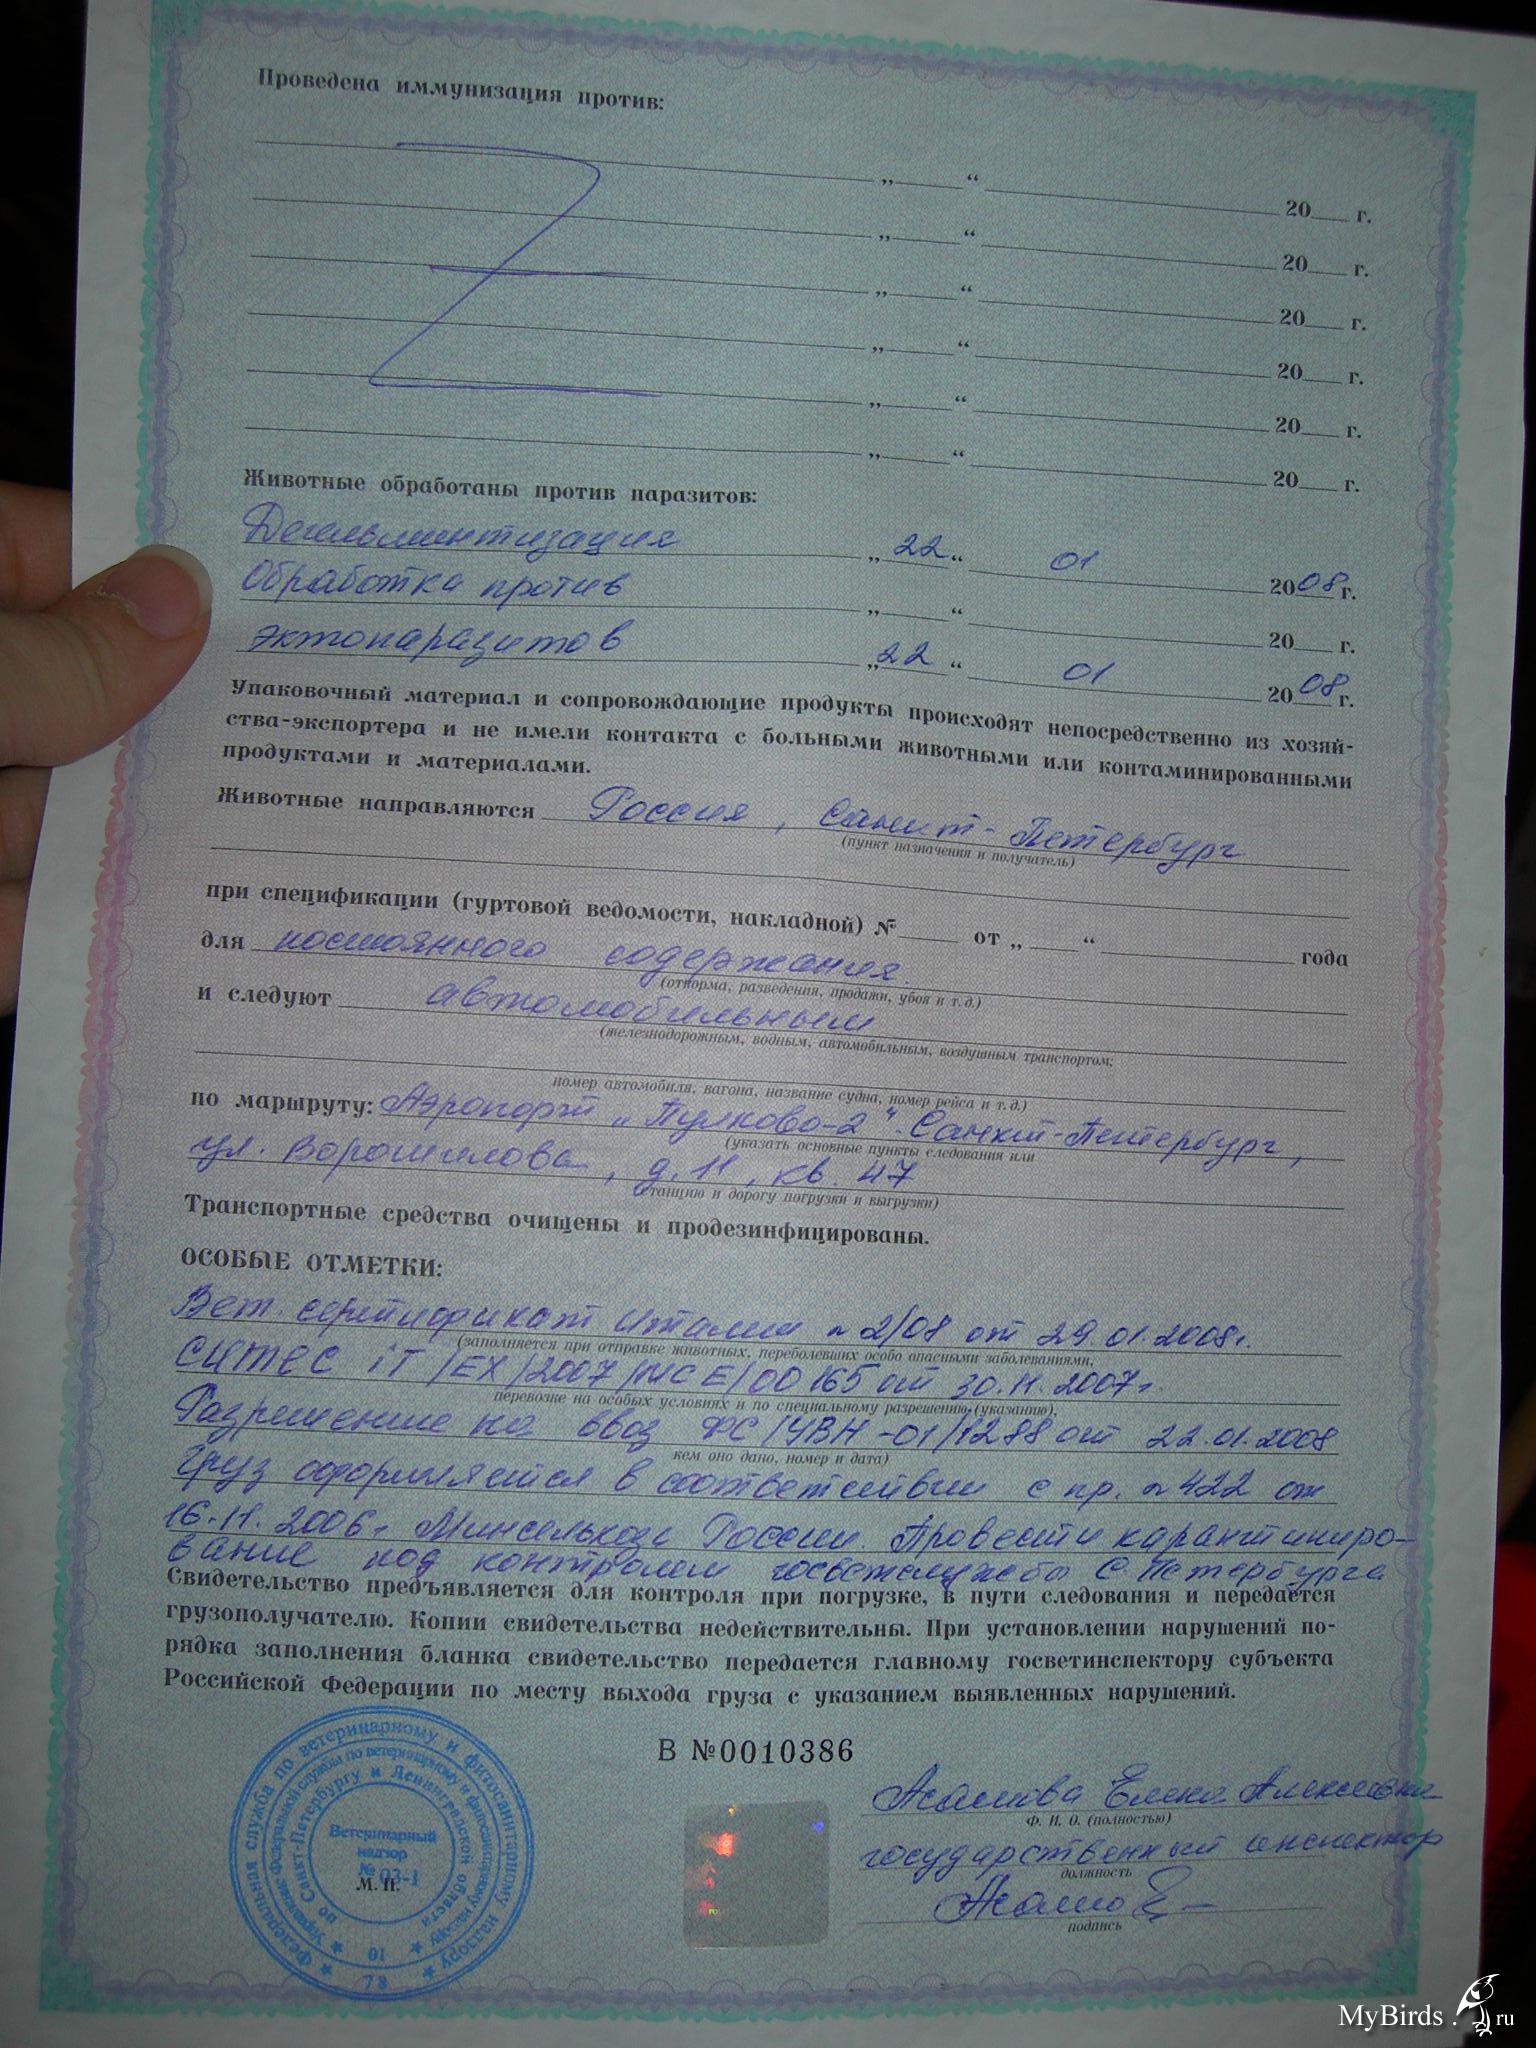 Проведена иммунизация против:
„ “ 20 г.
„ “ 20 г.
„ “ 20 г.
„ “ 20 г.
„ “ 20 г.
„ “ 20 г.
Животные обработаны против паразитов:
Дегельминтизация „ 22 “ 01 2008 г.
Обработка против „ “ 20 г.
эктопаразитов „ 22 “ 01 2008 г.
Упаковочный материал и сопровождающие продукты происходят непосредственно из хозяй-
ства-экспортера и не имели контакта с больными животными или контаминированными
продуктами и материалами.
Животные направляются Россия, Санкт-Петербург
(пункт назначения и получатель)
при спецификации (гуртовой ведомости, накладной) № от „ “ года
для постоянного содержания.
(откорма, разведения, продажи, убоя и т. д.)
и следуют автомобильным
(железнодорожным, водным, автомобильным, воздушным транспортом;
номер автомобиля, вагона, название судна, номер рейса и т. д.)
по маршруту: Аэропорт „Пулково-2“-Санкт-Петербург,
(указать основные пункты следования или
ул. Ворошилова, д. 11, кв. 47
станцию и дорогу погрузки и выгрузки)
Транспортные средства очищены и продезинфицированы.
ОСОБЫЕ ОТМЕТКИ:
Вет. сертификат Италии № 2/08 от 29.01.2008г.
(заполняется при отправке животных, переболевших особо опасными заболеваниями,
СИТЕС IT/EX/2007/MCE/00165 от 30.11.2007г.
перевозке на особых условиях и по специальному разрешению (указанию),
Разрешение на ввоз ФС/УВН-01/1288 от 22.01.2008
кем оно дано, номер и дата)
Груз оформляется в соответствии с пр. № 422 от
16.11.2006г. Минсельхоза России. Провести карантиниро-
вание под контролем госветслужбы С. Петербурга
Свидетельство предъявляется для контроля при погрузке, в пути следования и передается
грузополучателю. Копии свидетельства недействительны. При установлении нарушений по-
рядка заполнения бланка свидетельство передается главному госветинспектору субъекта
Российской Федерации по месту выхода груза с указанием выявленных нарушений.
В №0010386
Федеральная служба по ветеринарному и фитосанитарному надзору
Управление Федеральной службы по ветеринарному и фитосанитарному надзору
по Санкт-Петербургу и Ленинградской области
Ветеринарный
надзор
№ 03-1
М. П.
10
78
Елена Алексеевна
Ф. И. О. (полностью)
государственный инспектор
должность
подпись
MyBirds.ru